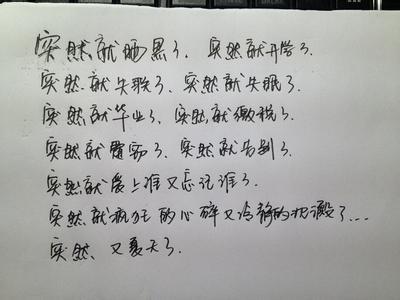 突然就晒黑了、突然就开学了、
突然就失联了、突然就失眠了、
突然就毕业了、突然就缴税了、
突然就震动了、突然就告别了、
突然就爱上谁又忘记谁了、
突然就疯狂的心碎又冷静的就了...
突然、又夏天了、